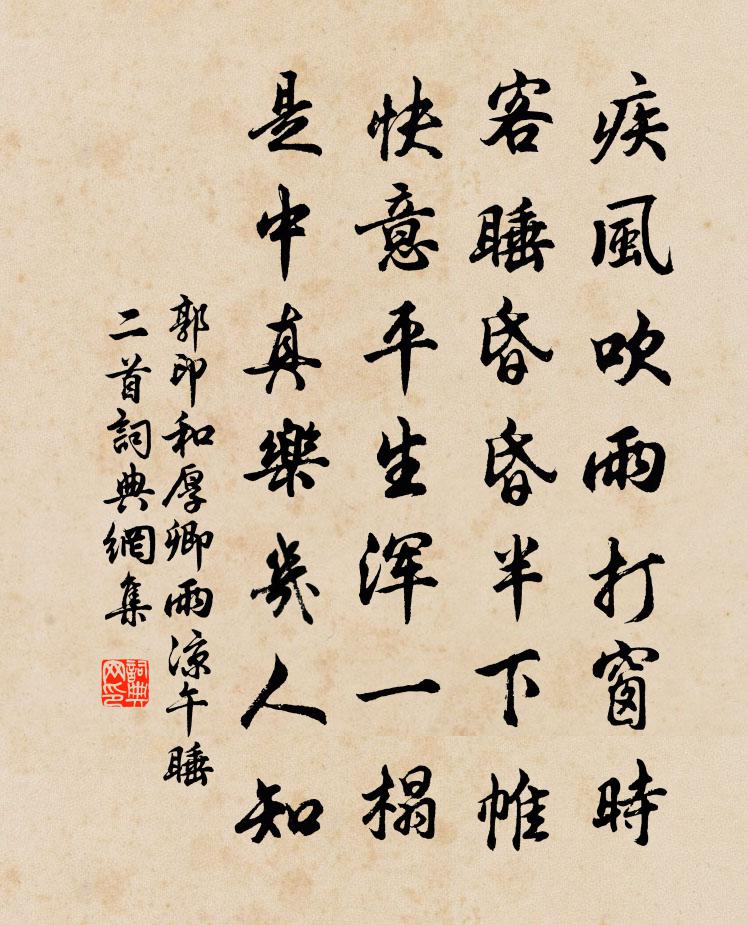 疾風吹雨打窗時
客睡昏昏半下帷
快意平生渾一榻
是中真樂幾人知
郭印和厚卿雨涼午睡
二首詞典網集
詞典网印